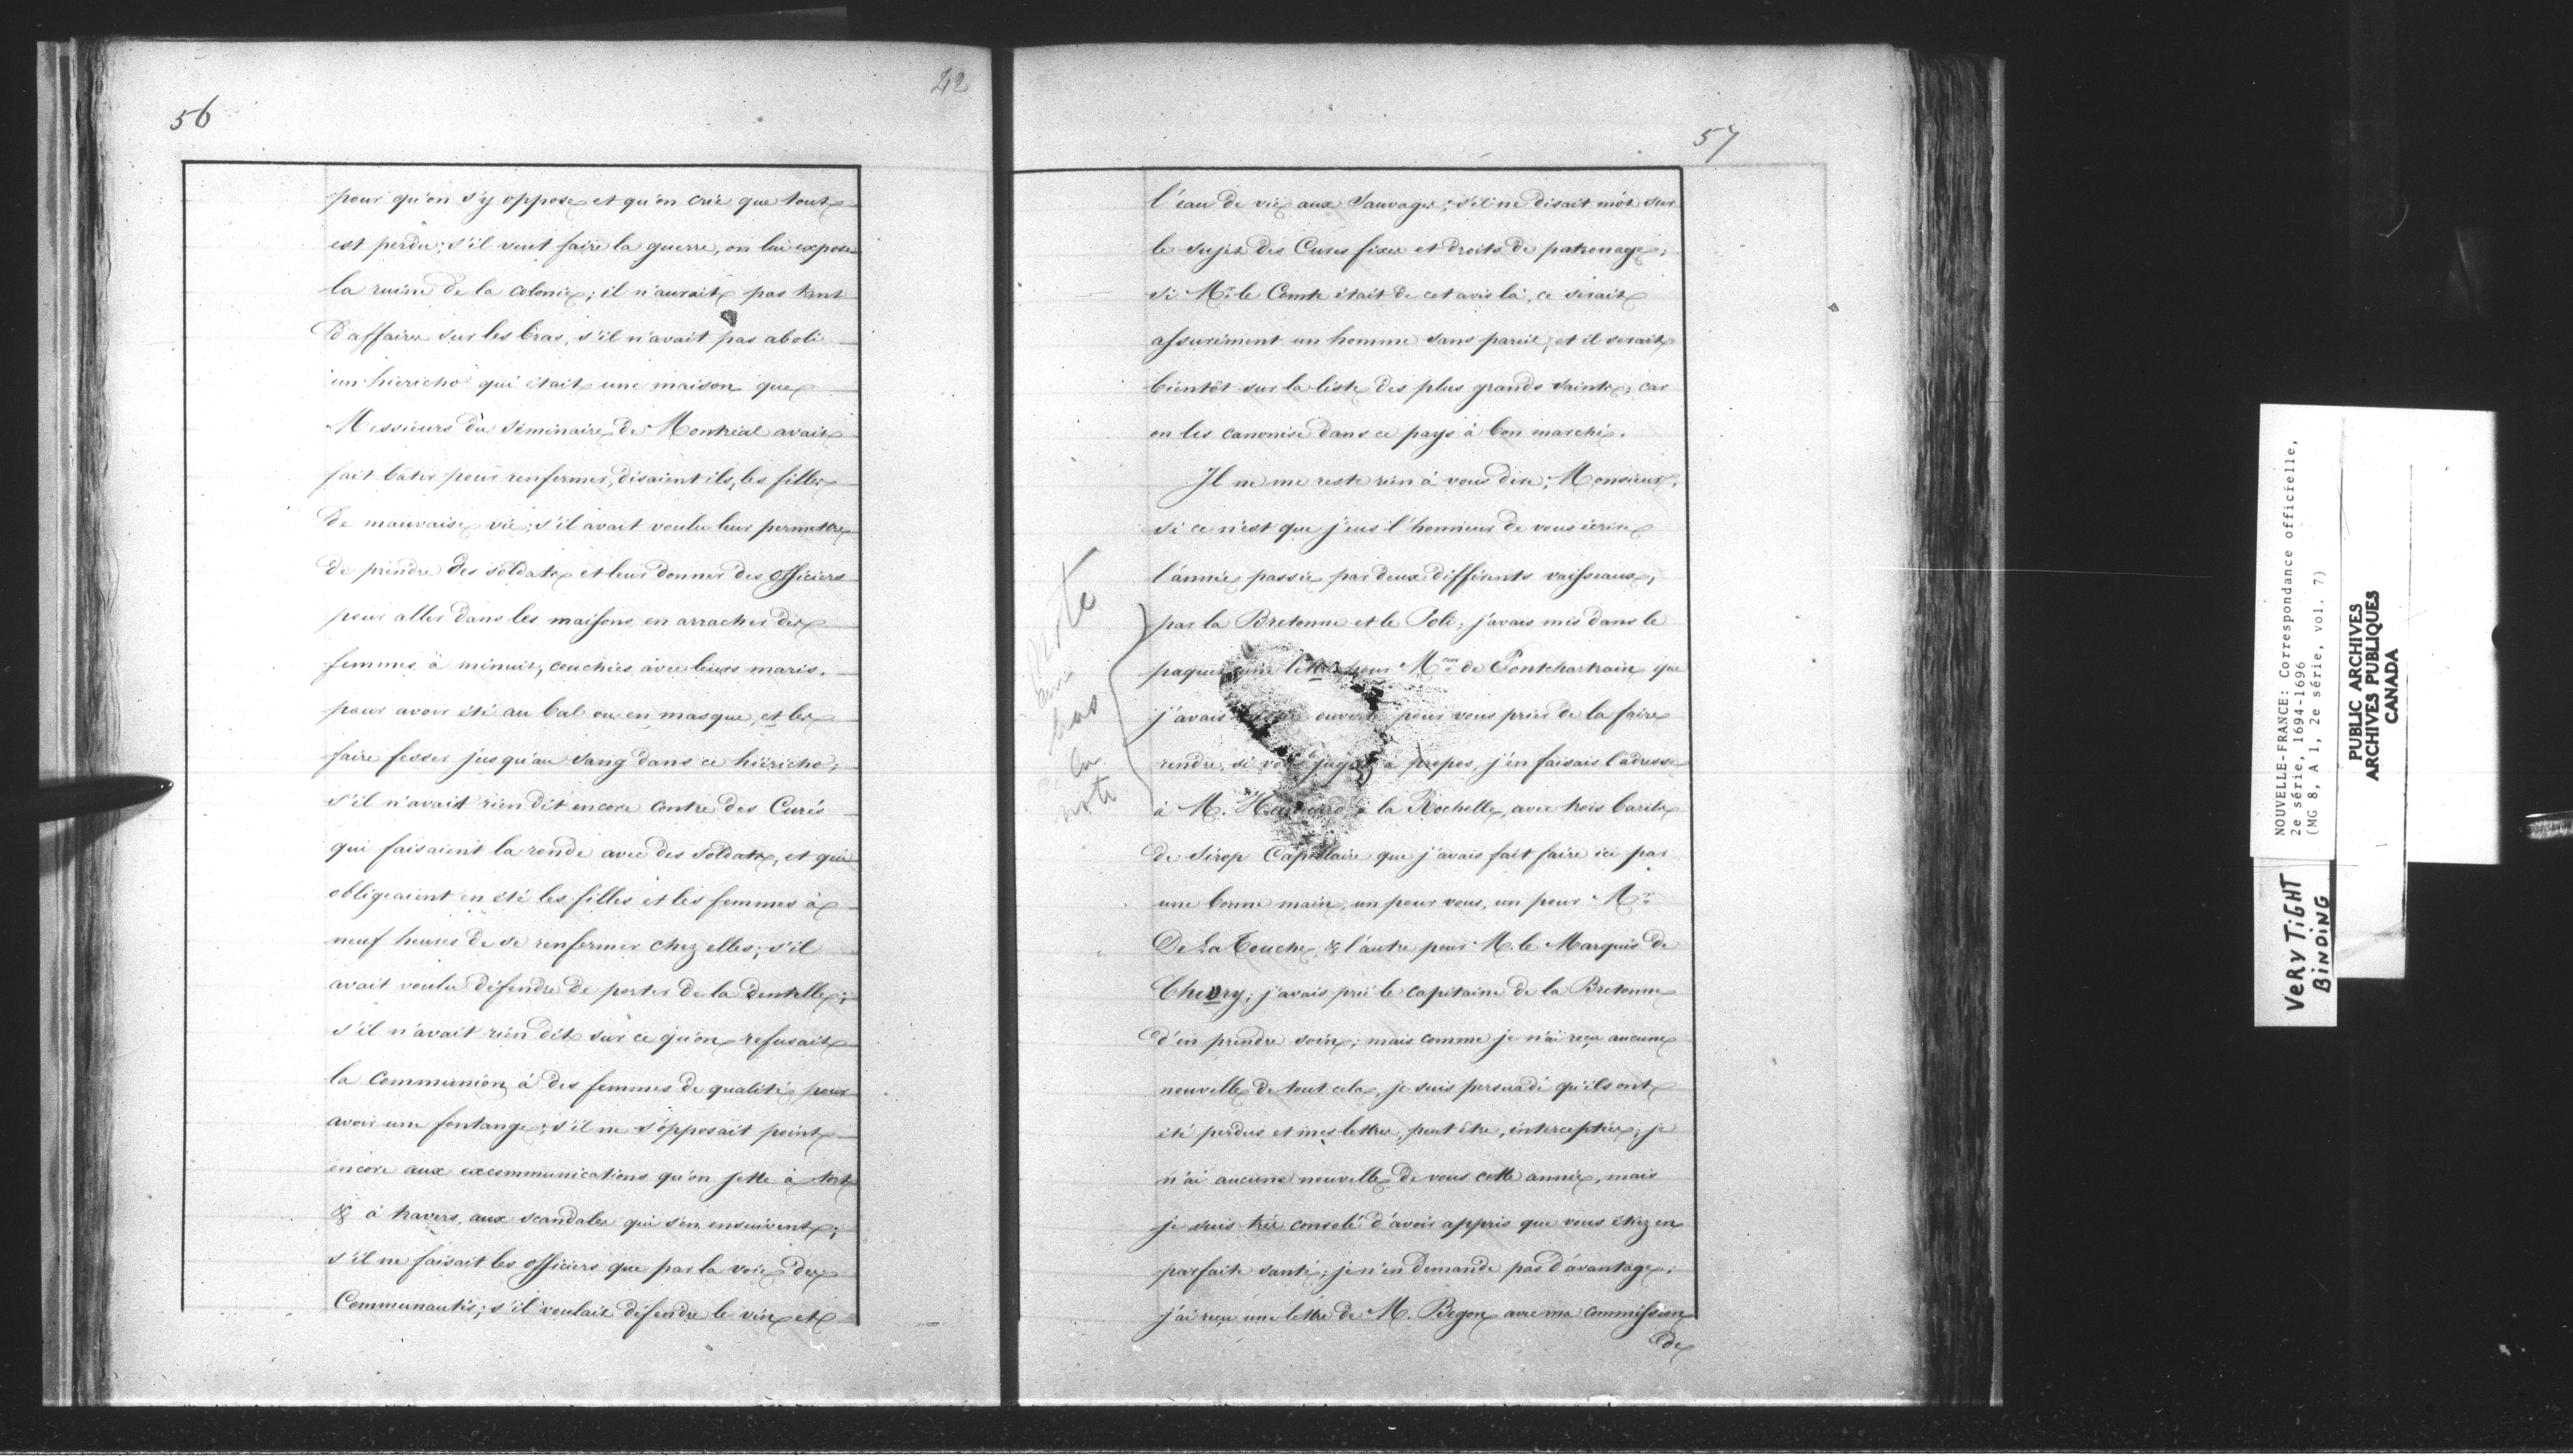 56
42
pour qu'on s'y oppose et qu'on crie que tout
est perdu; s'il veut faire la guerre, on lui expose
la ruine de la colonie; il n'aurait pas tant
d'affaires sur les bras, s'il n'avait pas aboli
un hiericho qui était une maison que
Messieurs du Séminaire de Montréal avait
fait bâtir pour renfermer, disaient ils, les filles
de mauvaise vie; s'il avait voulu leur permettre
de prendre des soldats et leur donner des officiers
pour aller dans les maisons en arracher des
femmes à minuit, couchées avec leurs maris,
pour avoir été au bal ou en masque, et les
faire fesser jusqu'au sang dans ce hiéricho;
s'il n'avait rien dit encore contre des Curés
qui faisaient la ronde avec des soldats, et qui
obligeaient en été les filles et les femmes à
neuf heures de se renfermer chez elles; s'il
avait voulu défendre de porter de la dentelle;
s'il n'avait rien dit sur ce qu'on refusait
la Communion à des femmes de qualité pour
avoir une fontange; s'il ne s'opposait point
encore aux excommunications qu'on jette à tort
& à travers, aux scandales qui s'en ensuivent;
s'il ne faisait les officiers que par la voie des
Communautés; s'il voulait défendre le vin et
57
l'eau de vie aux Sauvages; s'il ne disait mot sur
le sujet des Cures fixes et droits de patronage;
si Mr. le Comte était de cet avis là, ce serait
assurément un homme sans pareil, et il serait
bientôt sur la liste des plus grands saints, car
on les canonise dans ce pays à bon marché.
Il ne me reste rien à vous dire, Monsieur,
si ce n'est que j'eus l'honneur de vous écrire
l'année passée par deux différents vaisseaux,
par la Bretonne et le Poli; j'avais mis dans le
paquet une lettre pour Me. de Pontchartrain que
j'avais ouverte pour vous prier de la faire
rendre, si vous jugez à propos, j'en faisais l'adresse
à M. à la Rochelle, avec trois barils
de Sirop Capillaire que j'avais fait faire ici par
une bonne main, un pour vous, un pour Mr.
De La Touche, & l'autre pour M. le Marquis de
Chevry; j'avais prié le capitaine de la Bretonne
d'en prendre soin; mais comme je n'ai reçu aucune
nouvelle de tout cela, je suis persuadé qu'ils ont
été perdus et mes lettres, peut être, interceptées; je
n'ai aucune nouvelle de vous cette année, mais
je suis très consolé d'avoir appris que vous étiez en
parfaite santé; je n'en demande pas d'avantage;
j'ai reçu une lettre de M. Begon avec ma commission
de
note
bas
la
note
NOUVELLE-FRANCE: Correspondance officielle,
2e série, 1694-1696
(MG 8, A 1, 2e série, vol. 7)
PUBLIC ARCHIVES
ARCHIVES PUBLIQUES
CANADA
VERY TiGHT
BiNDiNG